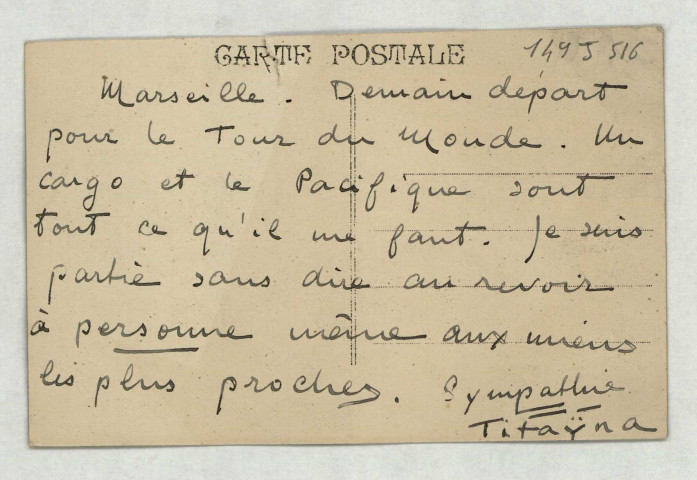 CARTE POSTALE
149 J 516
Marseille. Demain départ
pour le Tour du Monde. Un
cargo et le Pacifique sont
tout ce qu'il me faut. Je suis
partie sans dire au revoir
à personne même aux miens
les plus proches. Sympathie
Titaÿna